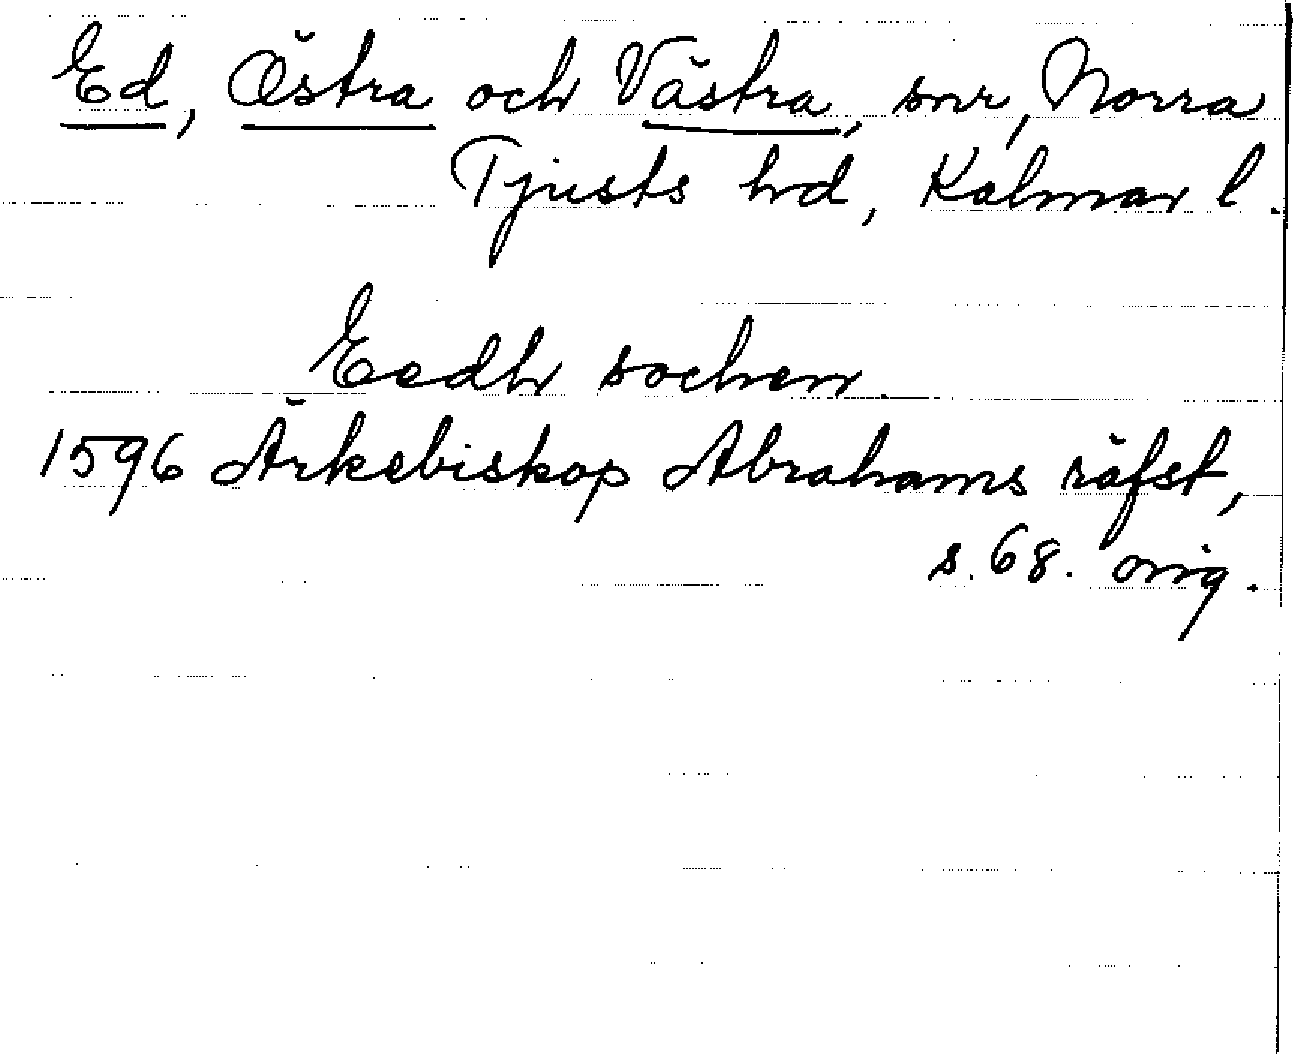 Ed, Östra och Västra, snr, Norra
Tjusts hd, Kalmar l.
Eedh sochen.
1596 Ärkebiskop Abrahams räfst,
s. 68. orig.